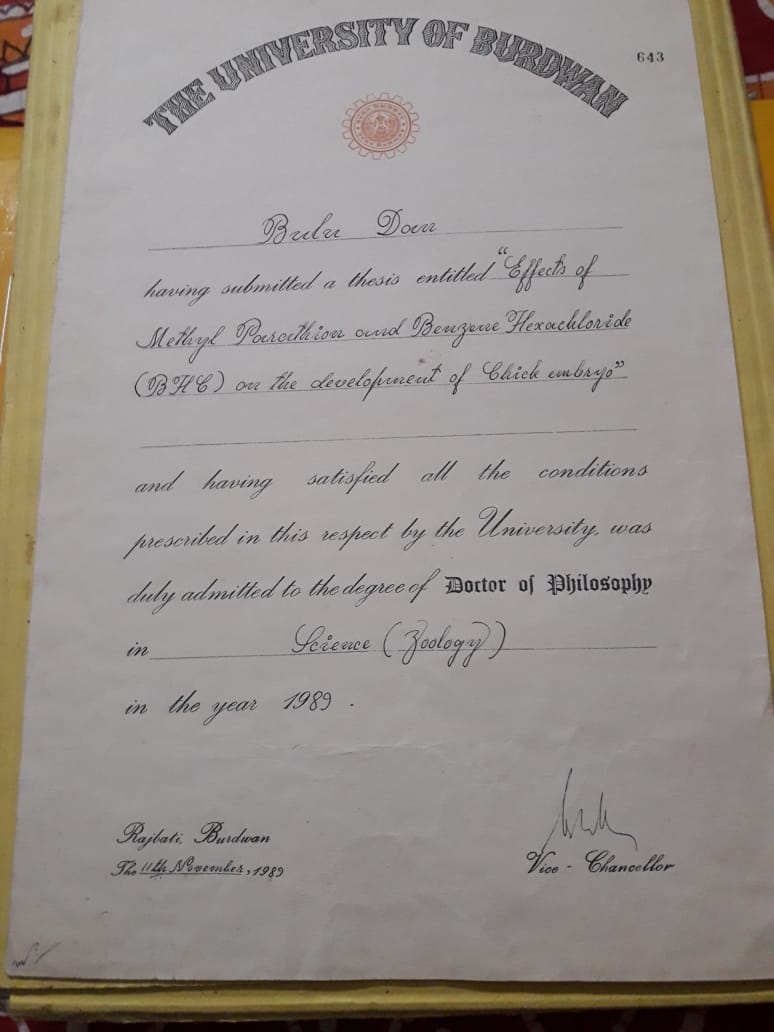 THE UNIVERSITY OF BURDWAN
643
Bulu Dan
having submitted a thesis entitled "Effects of
Methyl Parathion and Benzene Hexachloride
(BHC) on the development of Chick embryo"
and having satisfied all the conditions
prescribed in this respect by the University, was
duly admitted to the degree of Doctor of Philosophy
in Science (Zoology)
in the year 1989 .
Rajbati, Burdwan
The 11th November, 1989
Vice - Chancellor